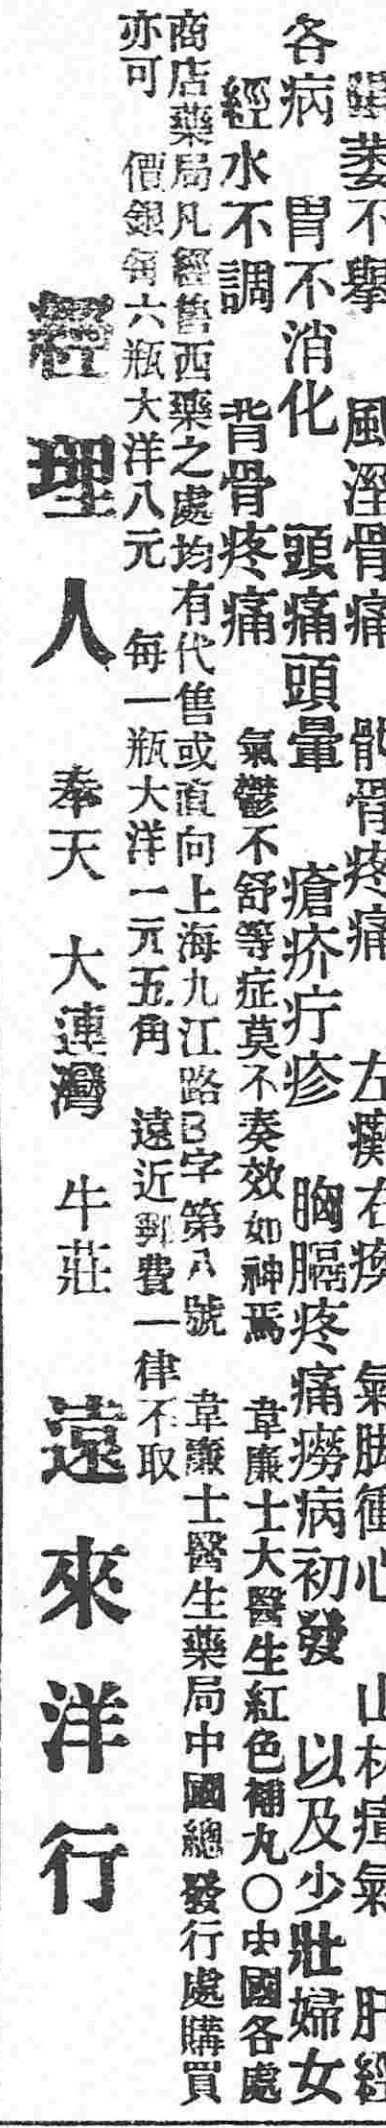 萎不舉 風溼骨痛 骨疼痛 左癱右瘓 氣脚衝心 山林瘴氣 肝經
各病 胃不消化 頭痛頭暈 瘡疥疔疹 胸膈疼痛癆病初發 以及少壯婦女
經水不調 背骨疼痛 氣鬱不舒等症莫不奏效如神焉 韋廉士大醫生紅色補丸〇中國各處
商店藥局凡經售西藥之處均有代售或直向上海九江路B字第八號 韋廉士醫生藥局中國總發行處購買
亦可 價銀每六瓶大洋八元 每一瓶大洋一元五角 遠近郵費一律不取
經理人 奉天 大連灣 牛莊 遠來洋行